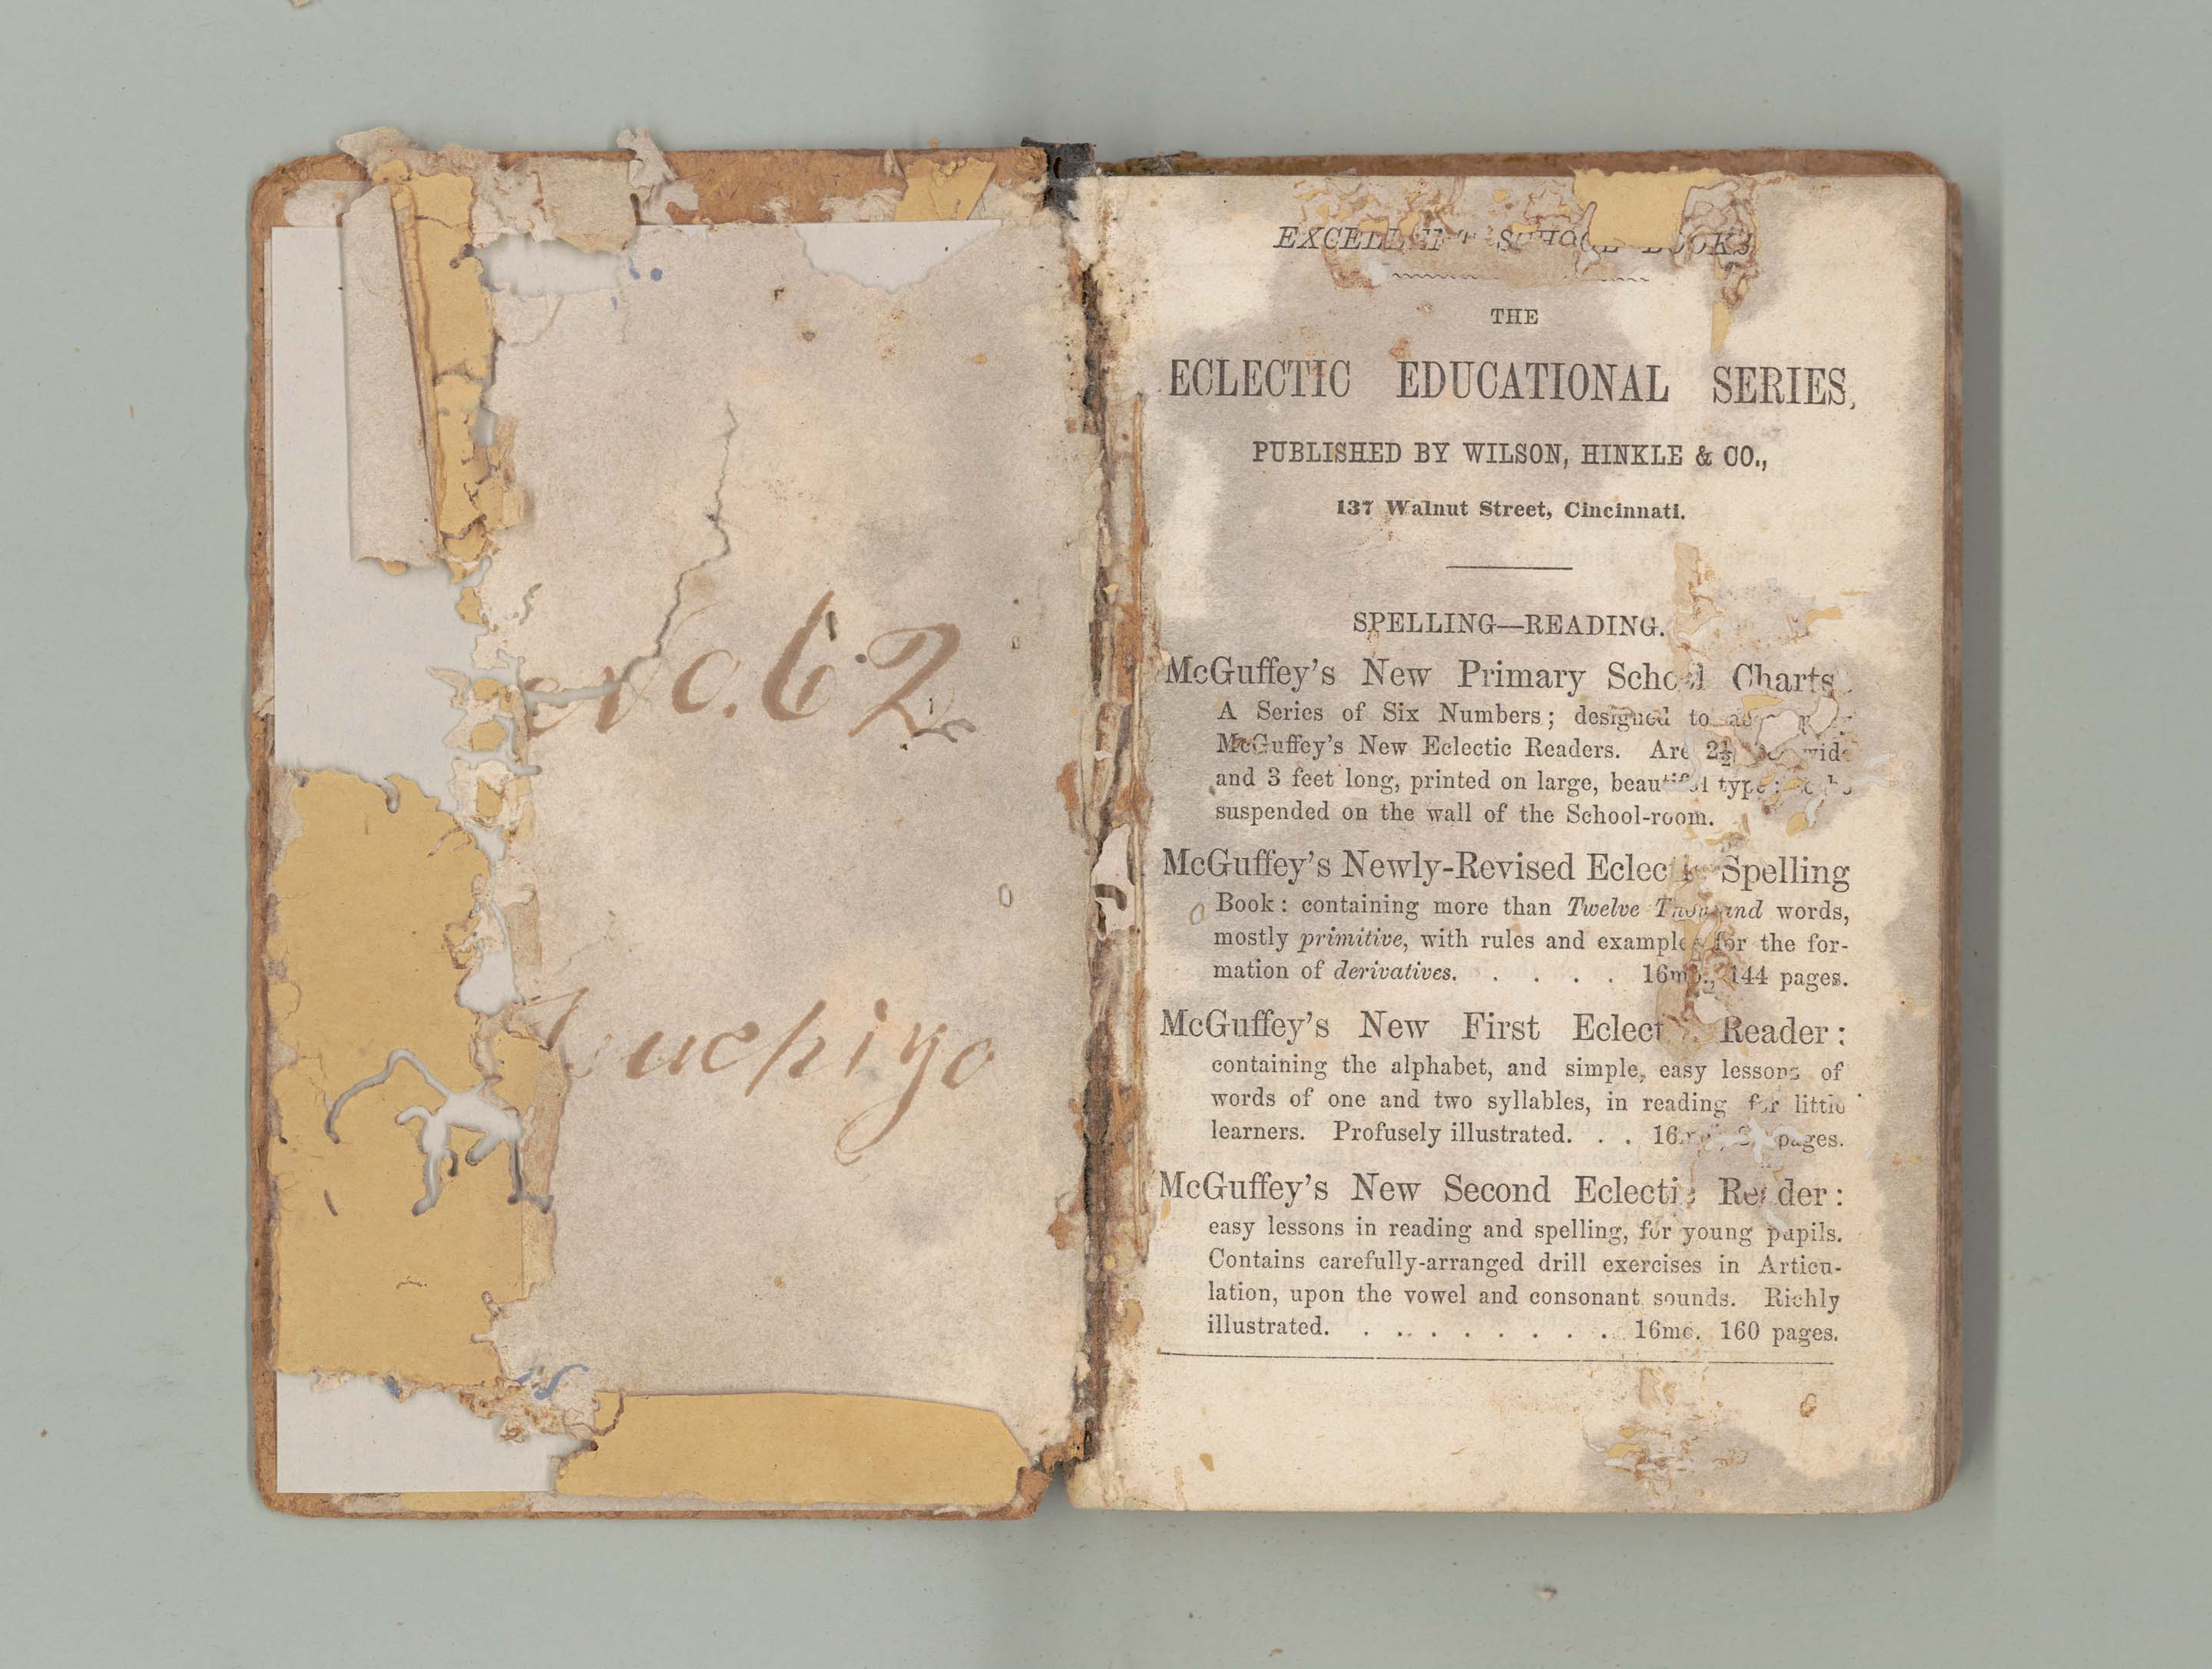 No. 62
THE
ECLECTIC EDUCATIONAL SERIES,
PUBLISHED BY WILSON, HINKLE & CO.,
137 Walnut Street, Cincinnati.
SPELLING—READING.
McGuffey's New Primary School Charts
A Series of Six Numbers; designed to
McGuffey's New Eclectic Readers. Are 2½ wide
and 3 feet long, printed on large, beautiful type;
suspended on the wall of the School-room.
McGuffey's Newly-Revised Eclectic Spelling
Book: containing more than Twelve Thousand words,
mostly primitive, with rules and examples for the for-
mation of derivatives. . . . . 16mo., 144 pages.
McGuffey's New First Eclectic Reader:
containing the alphabet, and simple, easy lessons of
words of one and two syllables, in reading for little
learners. Profusely illustrated. . . pages.
McGuffey's New Second Eclectic Reader:
easy lessons in reading and spelling, for young pupils.
Contains carefully-arranged drill exercises in Articu-
lation, upon the vowel and consonant sounds. Richly
illustrated. . . . . . . . . 16mo. 160 pages.